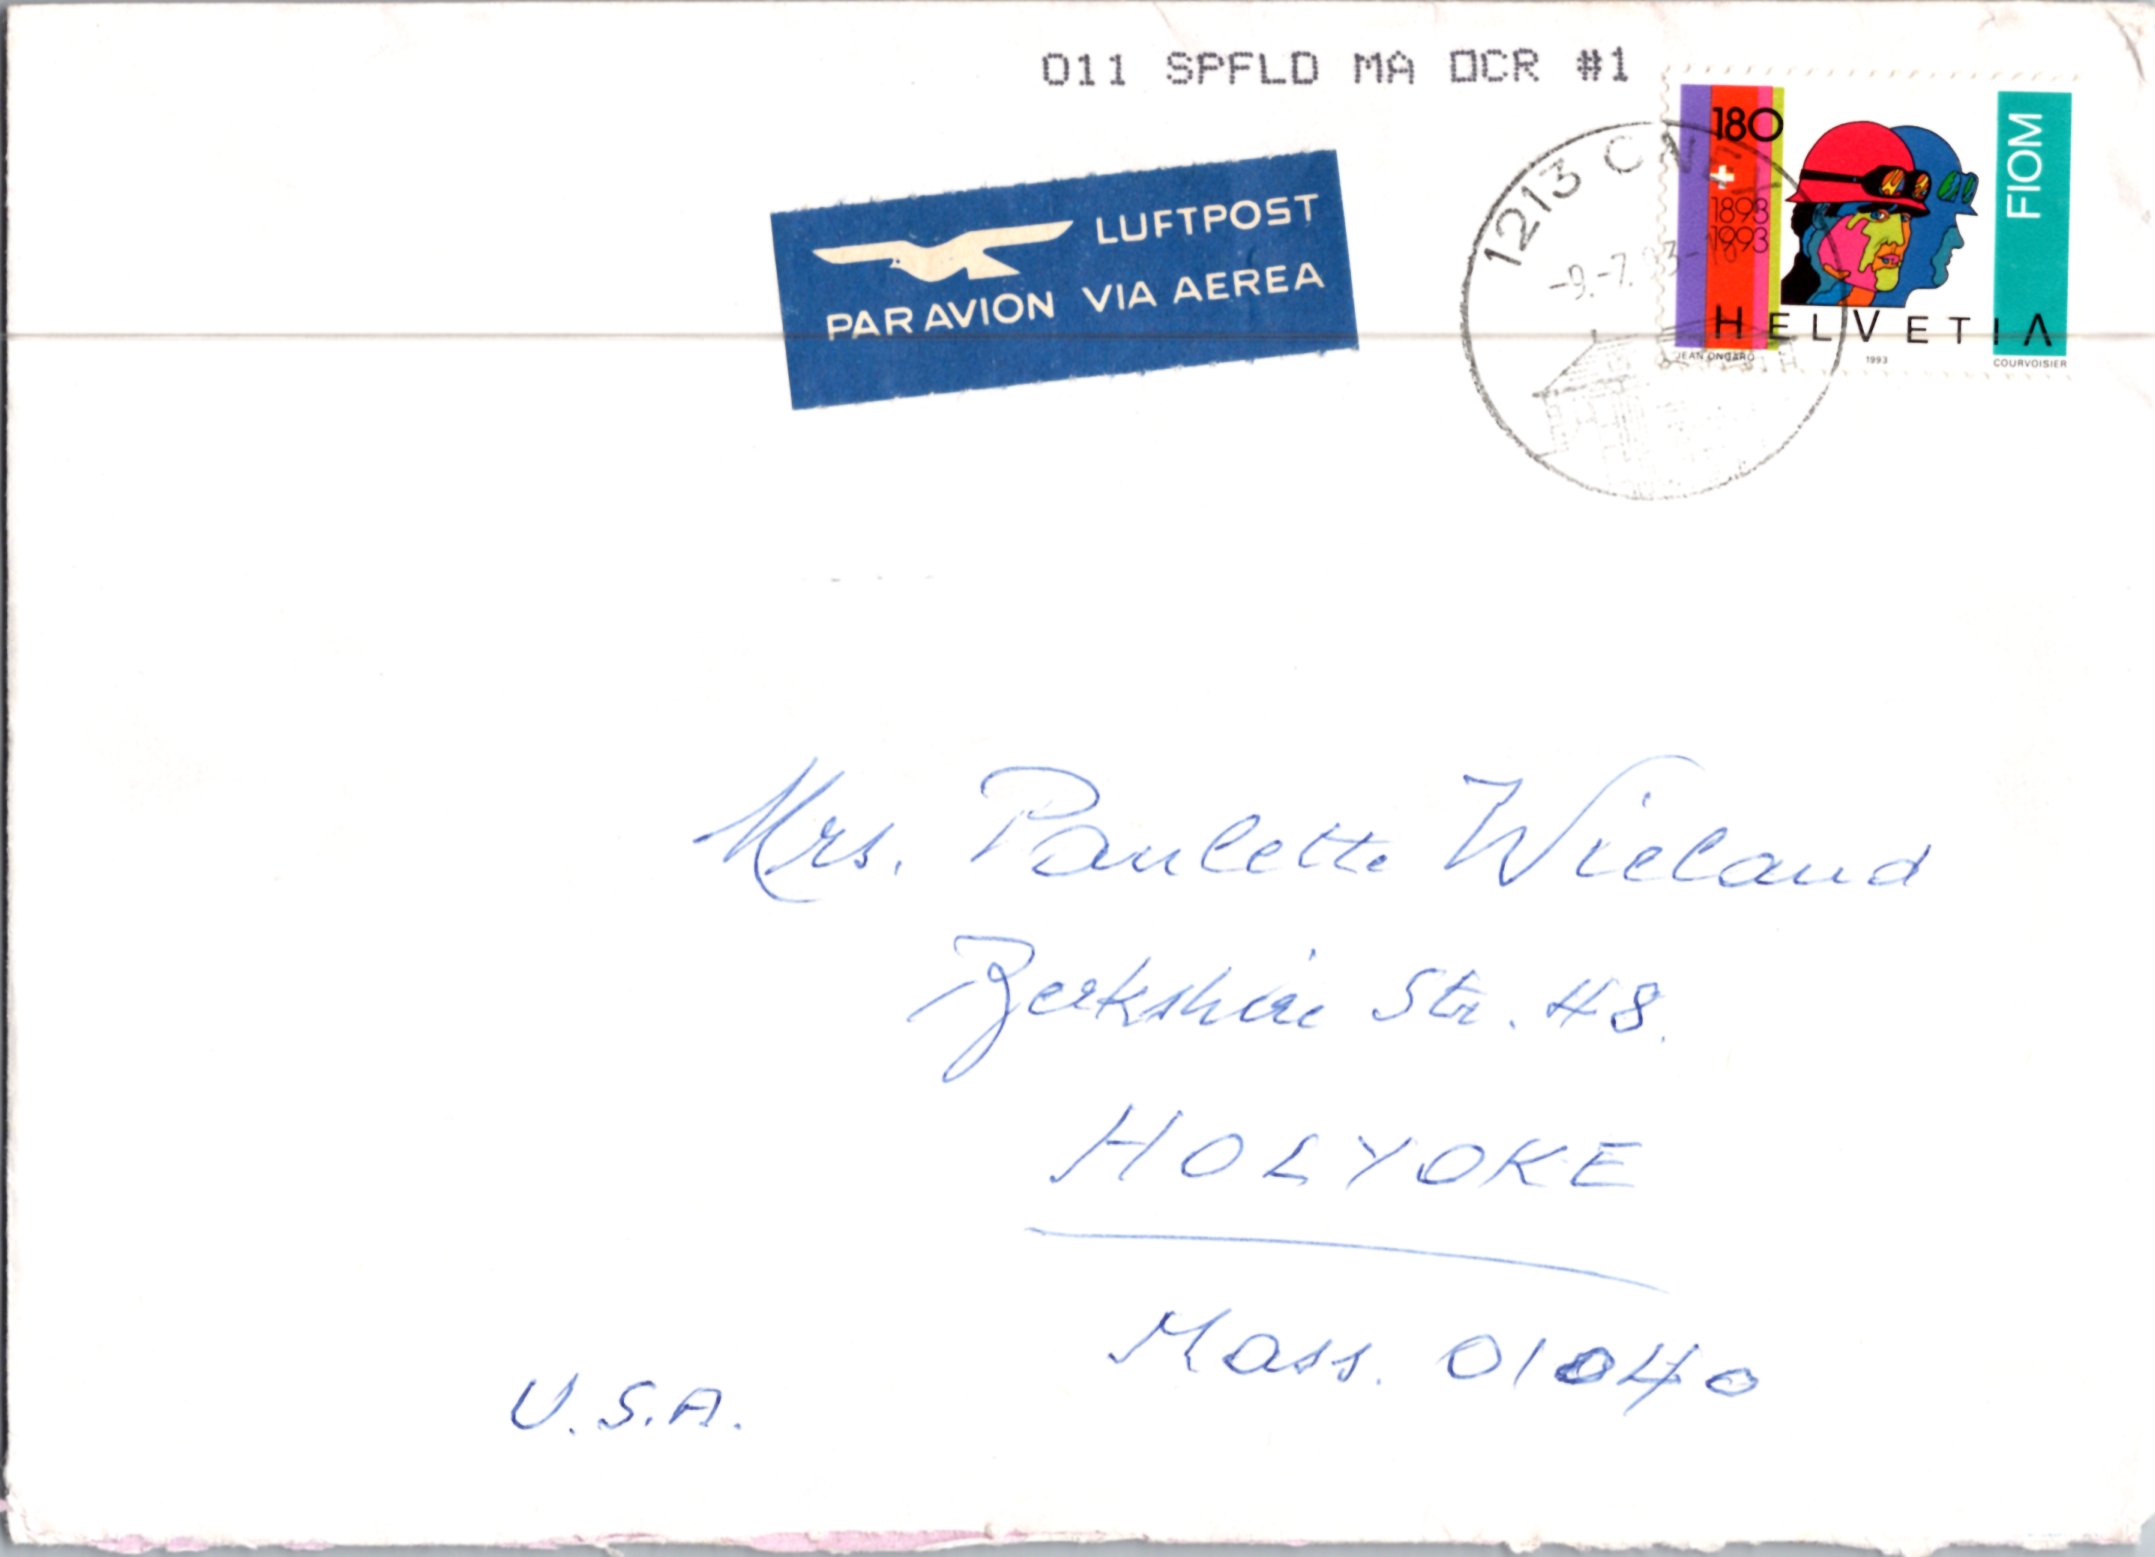 011 SPFLD MA OCR #1
LUFTPOST
PAR AVION VIA AEREA
1213
-9.-7.93-18
180
1893
1993
FIOM
HELVETIA
JEAN ONGARO 1993 COURVOISIER
Mrs. Paulette Wieland
Berkshire Str. 48.
HOLYOKE
Mass. 01040
U.S.A.